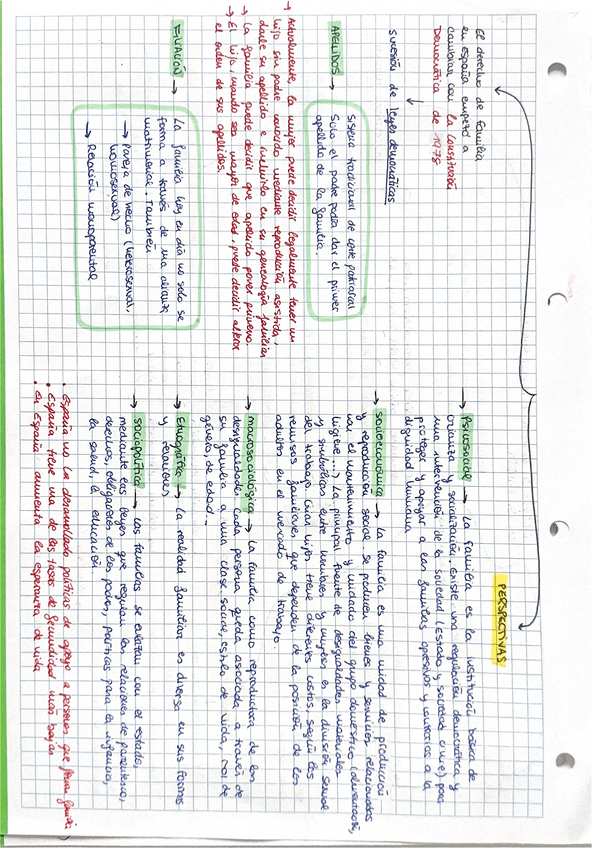 PERSPECTIVAS
El derecho de familia
en España empezó a
cambiar con la Constitución
Democrática de 1978
sucesión de leyes democráticas
APELLIDOS →
Sistema tradicional de corte patriarcal
Solo el padre podía dar el primer
apellido de la familia.
→ Actualmente, la mujer puede decidir legalmente tener un
hijo sin padre conocido mediante reproducción asistida,
darle su apellido e incluirlo en su genealogía familiar
→ La familia puede decidir que apellido poner primero.
→ El hijo, cuando sea mayor de edad, puede decidir alterar
el orden de sus apellidos.
FILIACIÓN →
La familia hoy en día no solo se
forma a través de una alianza
matrimonial. También
→ Pareja de hecho (heterosexual,
homosexual)
→ Relación monoparental
→ Psicosocial → La familia es la institución básica de
crianza y socialización. Existe una regulación democrática y
una intervención de la sociedad (Estado y sociedad civil) para
proteger y apoyar a las familias opresivas y contrarias a la
dignidad humana
→ socioeconómica → La familia es una unidad de producción
y reproducción social. Se producen bienes y servicios relacionados
con el mantenimiento y cuidado del grupo doméstico (alimentación,
higiene...) La principal fuente de desigualdades materiales
y simbólicas entre hombres y mujeres es la división sexual
del trabajo. Criar hijos tiene diferentes costos, según los
recursos familiares que dependen de la posición de los
adultos en el mercado de trabajo
→ macrosociológica → La familia como reproductora de las
desigualdades. Cada persona queda asociada a través de
su familia a una clase social, estilo de vida, rol de
género, de edad...
→ Etnográfica → La realidad familiar es diversa en sus formas
y relaciones
→ sociopolítica → Las familias se enlazan con el estado,
mediante las leyes que regulan las relaciones de parentesco,
derechos, obligaciones de los padres, políticas para la infancia,
la salud, la educación
• España no ha desarrollado políticas de apoyo a personas que forman famili
• España tiene una de las tasas de fecundidad más bajas
• En España aumenta la esperanza de vida